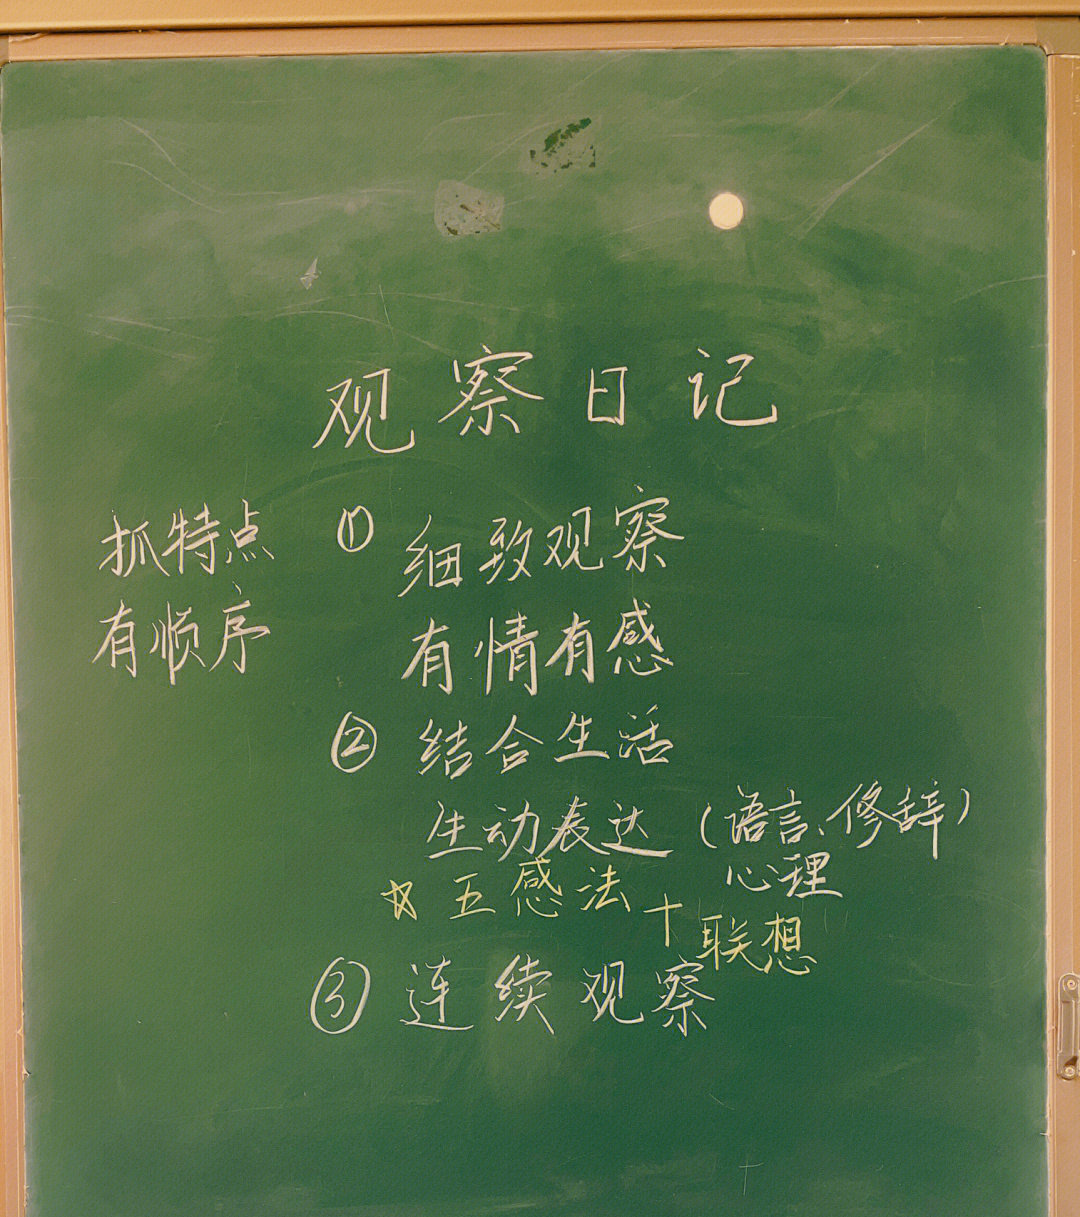 观察日记
抓特点
有顺序
① 细致观察
有情有感
② 结合生活
生动表达 (语言、修辞)
心理
☆ 五感法 + 联想
③ 连续观察